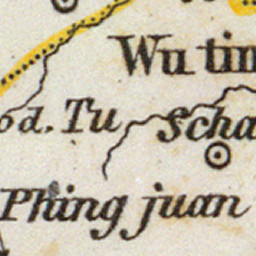 Wu tin
od. Tu Scha
Phing juan